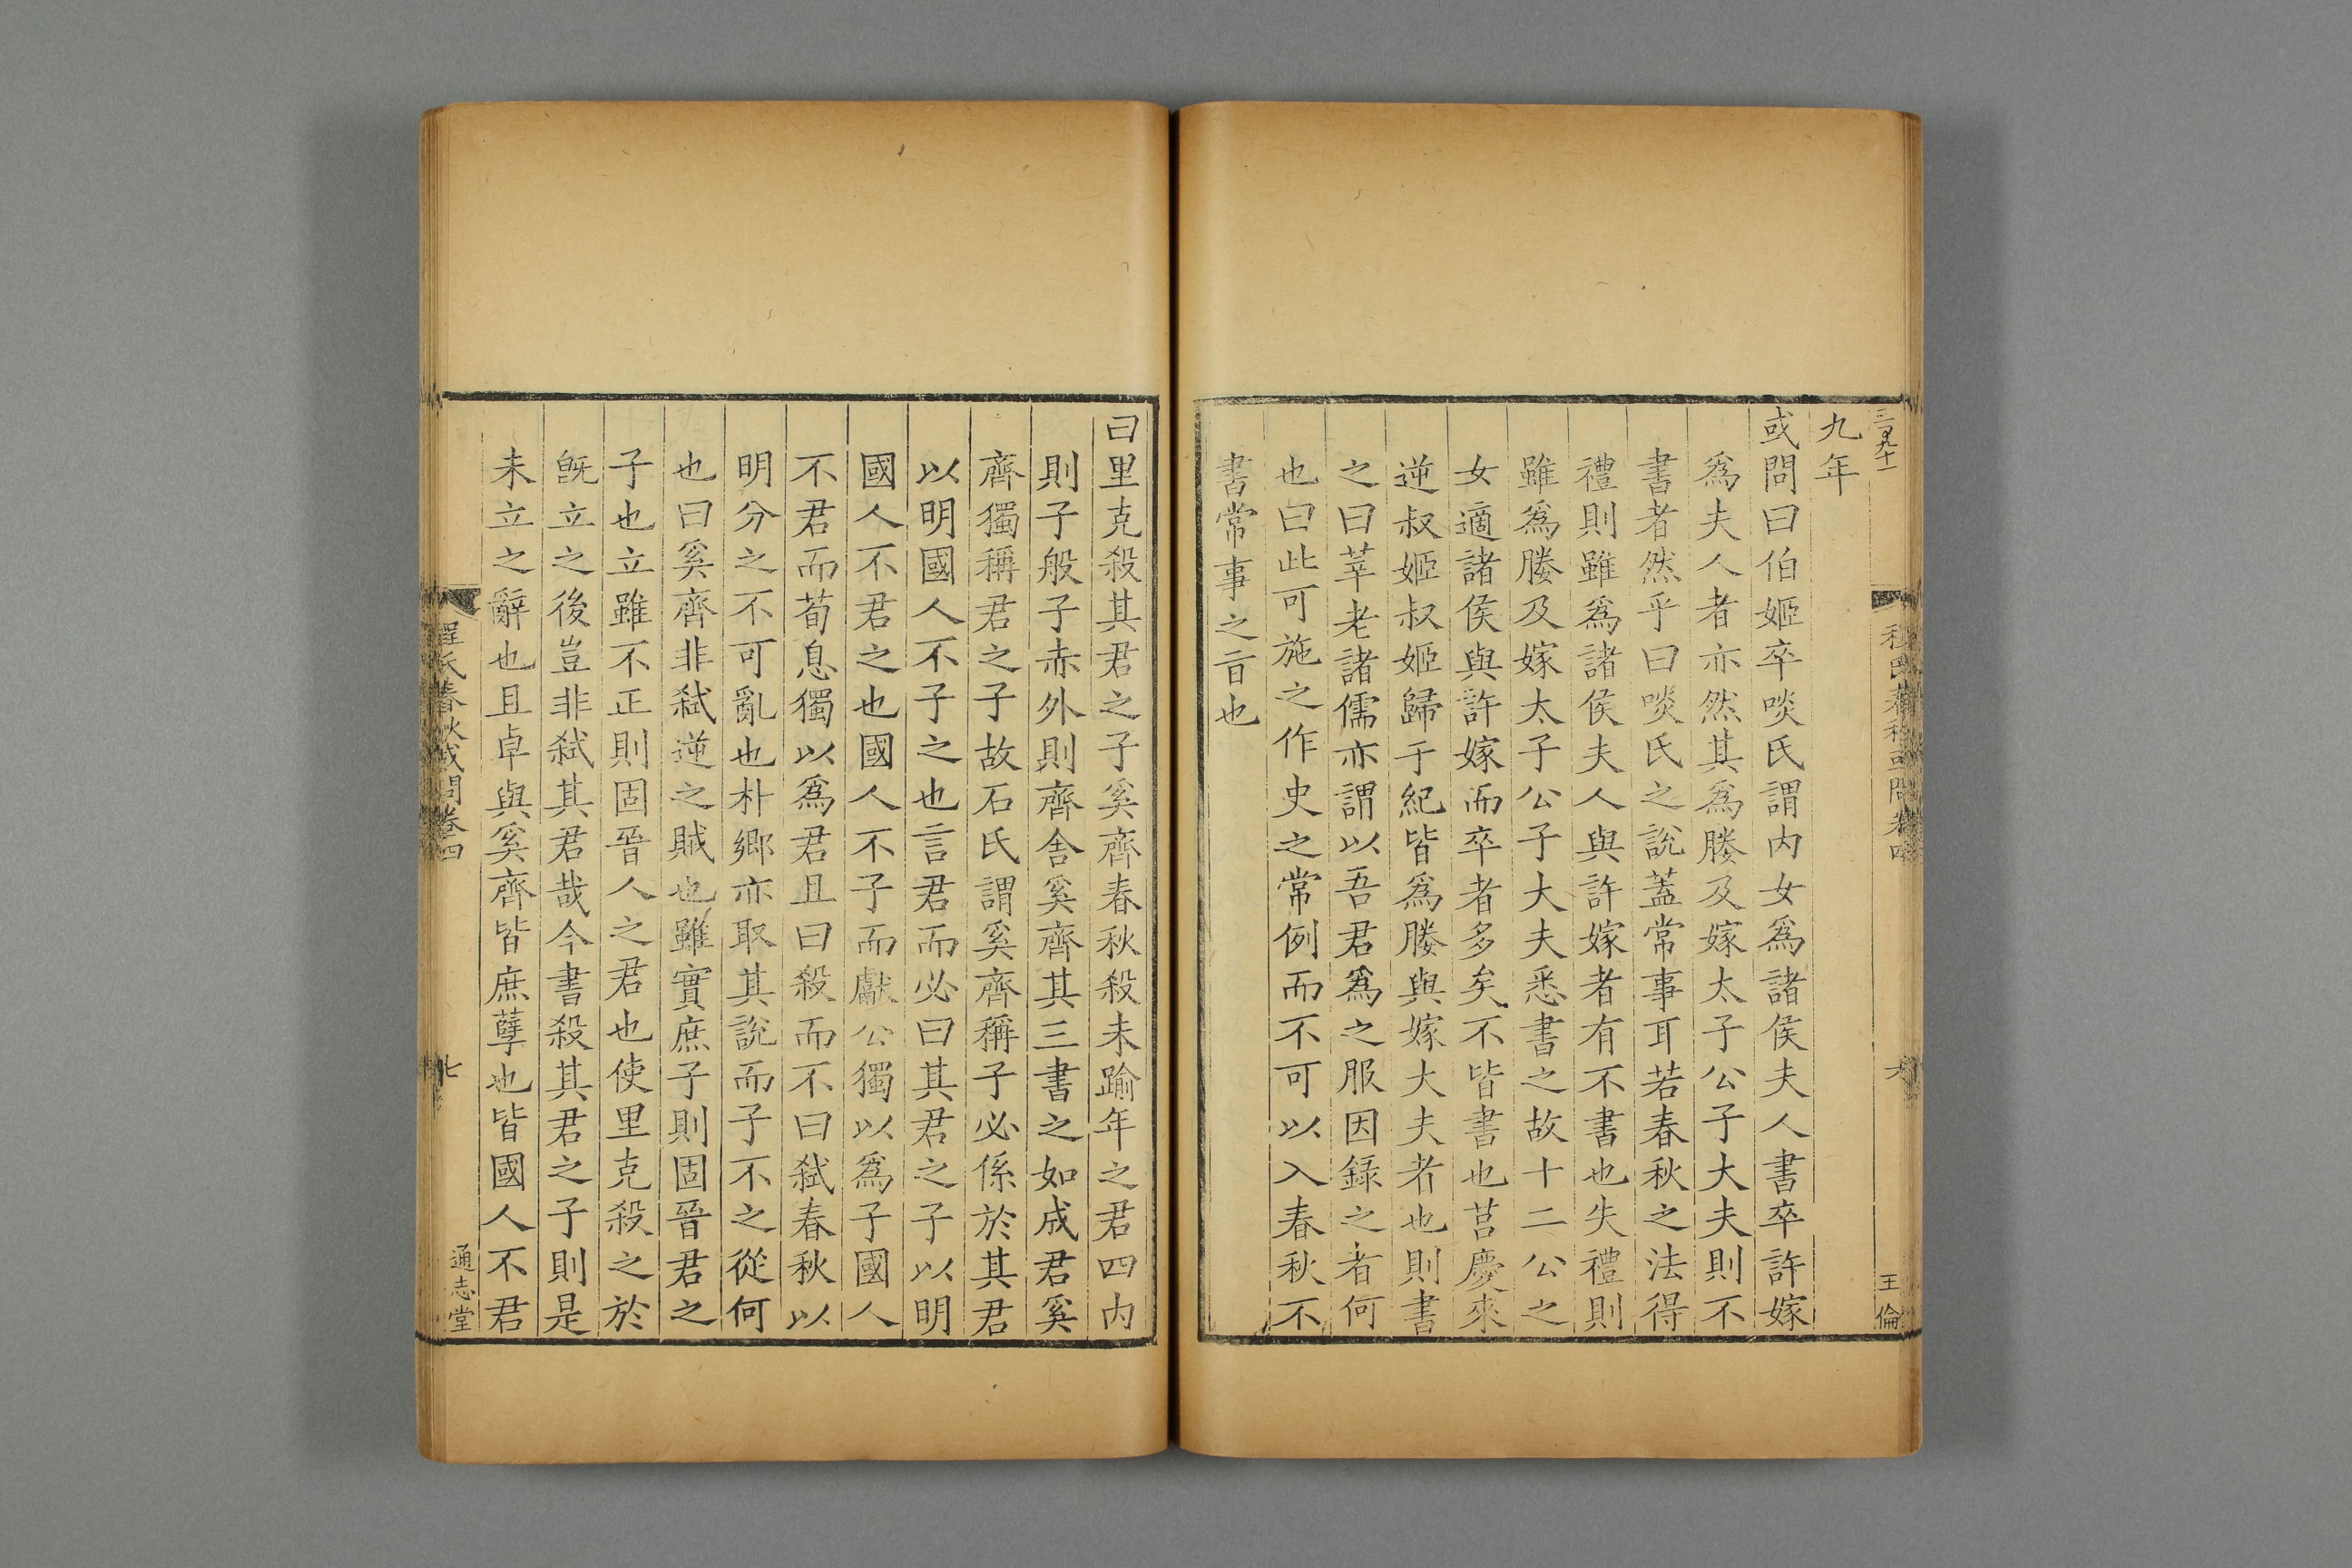 三百九十一
程氏春秋或問卷四
六
王倫
九年
或問曰伯姬卒啖氏謂内女爲諸侯夫人書卒許嫁
爲夫人者亦然其爲媵及嫁太子公子大夫則不
書者然乎曰啖氏之說蓋常事耳若春秋之法得
禮則雖爲諸侯夫人與許嫁者有不書也失禮則
雖爲媵及嫁太子公子大夫悉書之故十二公之
女適諸侯與許嫁而卒者多矣不皆書也莒慶來
逆叔姬叔姬歸于紀皆爲媵與嫁大夫者也則書
之曰莘老諸儒亦謂以吾君爲之服因録之者何
也曰此可施之作史之常例而不可以入春秋不
書常事之旨也
曰里克殺其君之子奚齊春秋殺未踰年之君四内
則子般子赤外則齊舍奚齊其三書之如成君奚
齊獨稱君之子故石氏謂奚齊稱子必係於其君
以明國人不子之也言君而必曰其君之子以明
國人不君之也國人不子而獻公獨以爲子國人
不君而荀息獨以爲君且曰殺而不曰弑春秋以
明分之不可亂也朴鄉亦取其說而子不之從何
也曰奚齊非弑逆之賊也雖實庶子則固晉君之
子也立雖不正則固晉人之君也使里克殺之於
旣立之後豈非弑其君哉今書殺其君之子則是
未立之辭也且卓與奚齊皆庶孽也皆國人不君
程氏春秋或問卷四
七
通志堂